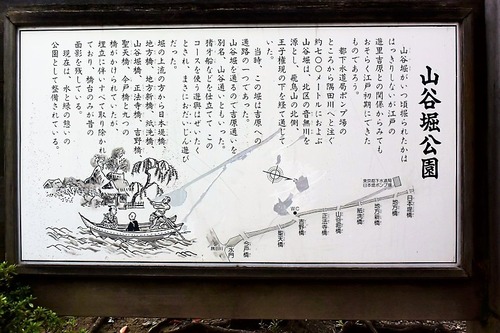 山谷堀公園
山谷堀がいつ頃掘られたかは
はっきりしないが江戸の
遊里吉原との関係からみても
おそらく江戸初期にできた
ものであろう。
都下水道局ポンプ場の
ところから隅田川へと注ぐ
約七〇〇メートルにおよぶ
山谷堀は、北区の音無川を
源とし、飛鳥山の北側、
王子権現の下を経て通じて
いた。
当時、この堀は吉原への
通路の一つであった。
山谷堀を通るので吉原通いを
別名、山谷通いともいった。
猪牙船などを仕立てて、この
コースを使う遊興はぜいたく
とされ、まさにおだいじん遊び
だった。
堀の上流の方から日本堤橋、
地方橋、地方新橋、紙洗橋、
山谷堀橋、正法寺橋、吉野橋、
聖天橋、今戸橋と九つの
橋がかけられていたが、
埋立に伴いすべて取り除かれ
ており、橋台のみが昔の
面影を残している。
現在は、水と緑の憩いの
公園として整備されている。
東京都下水道局
日本堤ポンプ場
日本堤橋
地方橋
地方新橋
紙洗橋
山谷堀橋
正法寺橋
吉野橋
聖天橋
今戸橋
水門
隅田川